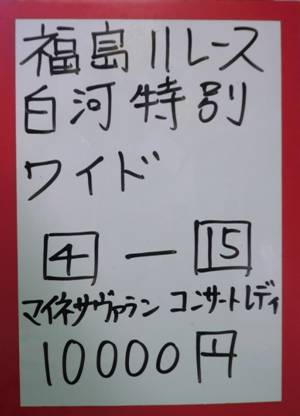 福島11レース
白河特別
ワイド
4 — 15
マイネサヴァラン コンサートレディ
10000円